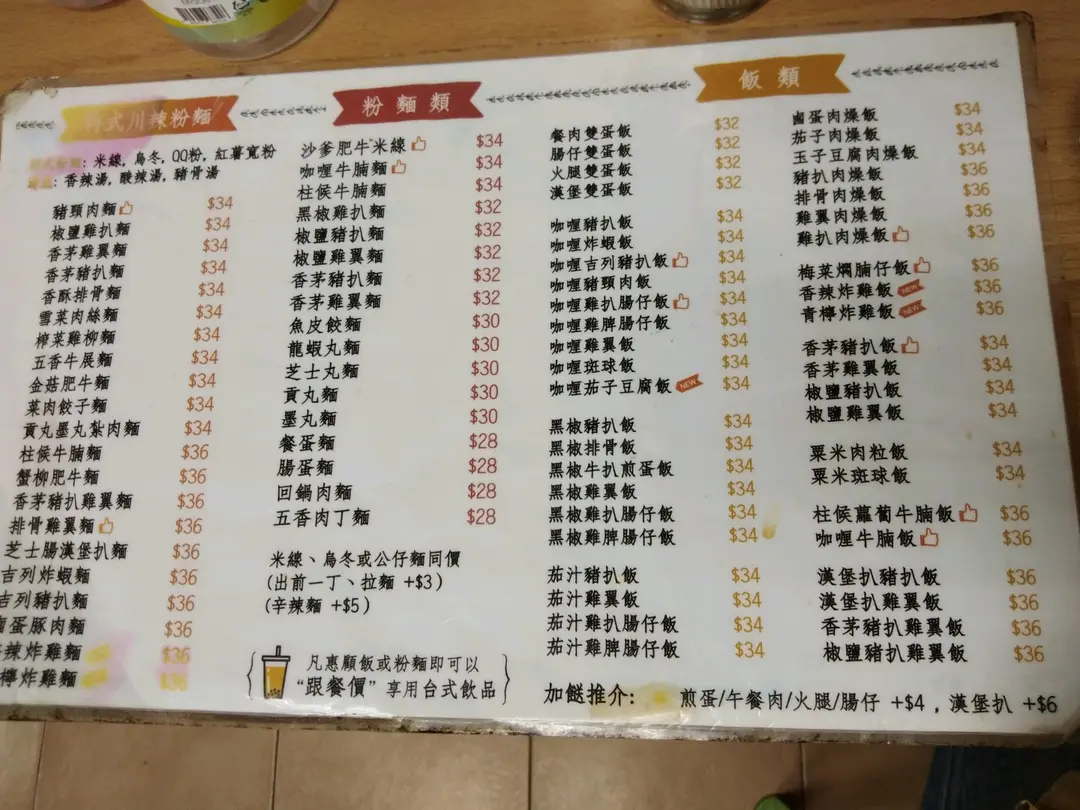 式川辣粉麵
: 米線, 烏冬, QQ粉, 紅薯寬粉
: 香辣湯, 酸辣湯, 豬骨湯
豬頸肉麵 $34
椒鹽雞扒麵 $34
香茅雞翼麵 $34
香茅豬扒麵 $34
香酥排骨麵 $34
雪菜肉絲麵 $34
榨菜雞柳麵 $34
五香牛展麵 $34
金菇肥牛麵 $34
菜肉餃子麵 $34
貢丸墨丸紮肉麵 $34
柱侯牛腩麵 $36
蟹柳肥牛麵 $36
香茅豬扒雞翼麵 $36
排骨雞翼麵 $36
芝士腸漢堡扒麵 $36
吉列炸蝦麵 $36
吉列豬扒麵 $36
蛋豚肉麵 $36
辣炸雞麵 $36
檸炸雞麵 $36
粉麵類
沙爹肥牛米線 $34
咖喱牛腩麵 $34
柱侯牛腩麵 $34
黑椒雞扒麵 $32
椒鹽豬扒麵 $32
椒鹽雞翼麵 $32
香茅豬扒麵 $32
香茅雞翼麵 $32
魚皮餃麵 $30
龍蝦丸麵 $30
芝士丸麵 $30
貢丸麵 $30
墨丸麵 $30
餐蛋麵 $28
腸蛋麵 $28
回鍋肉麵 $28
五香肉丁麵 $28
米線、烏冬或公仔麵同價
(出前一丁、拉麵 +$3)
(辛辣麵 +$5)
凡惠顧飯或粉麵即可以
“跟餐價” 享用台式飲品
飯類
餐肉雙蛋飯 $32
腸仔雙蛋飯 $32
火腿雙蛋飯 $32
漢堡雙蛋飯 $32
咖喱豬扒飯 $34
咖喱炸蝦飯 $34
咖喱吉列豬扒飯 $34
咖喱豬頸肉飯 $34
咖喱雞扒腸仔飯 $34
咖喱雞脾腸仔飯 $34
咖喱雞翼飯 $34
咖喱斑球飯 $34
咖喱茄子豆腐飯 NEW $34
黑椒豬扒飯 $34
黑椒排骨飯 $34
黑椒牛扒煎蛋飯 $34
黑椒雞翼飯 $34
黑椒雞扒腸仔飯 $34
黑椒雞脾腸仔飯 $34
茄汁豬扒飯 $34
茄汁雞翼飯 $34
茄汁雞扒腸仔飯 $34
茄汁雞脾腸仔飯 $34
鹵蛋肉燥飯 $34
茄子肉燥飯 $34
玉子豆腐肉燥飯 $34
豬扒肉燥飯 $36
排骨肉燥飯 $36
雞翼肉燥飯 $36
雞扒肉燥飯 $36
梅菜燜腩仔飯 $36
香辣炸雞飯 NEW $36
青檸炸雞飯 NEW $36
香茅豬扒飯 $34
香茅雞翼飯 $34
椒鹽豬扒飯 $34
椒鹽雞翼飯 $34
粟米肉粒飯 $34
粟米斑球飯 $34
柱侯蘿蔔牛腩飯 $36
咖喱牛腩飯 $36
漢堡扒豬扒飯 $36
漢堡扒雞翼飯 $36
香茅豬扒雞翼飯 $36
椒鹽豬扒雞翼飯 $36
加餸推介: 煎蛋/午餐肉/火腿/腸仔 +$4 , 漢堡扒 +$6